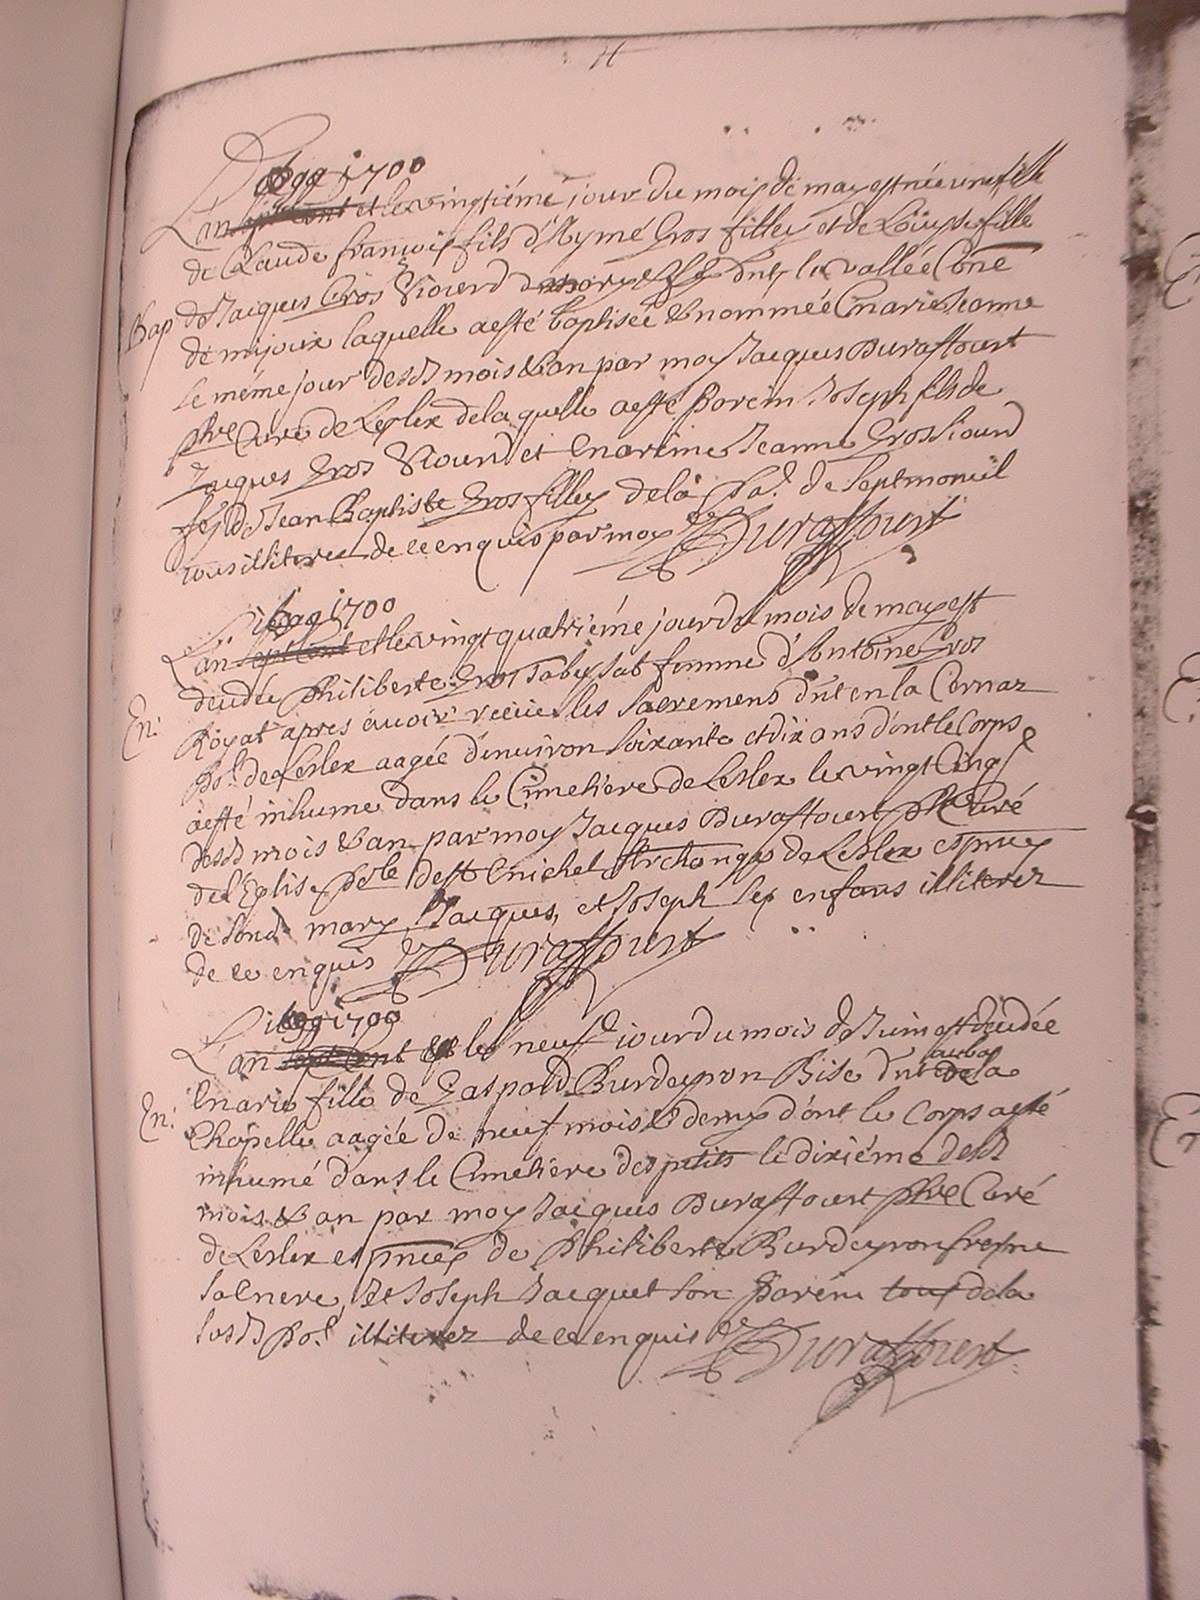 1699 1700
L'an sept cent et le vingtiéme jour du mois de may est née une fille
de Claude françois fils d'Aymé Gros filley et de Loüyse fille
Bap de Jacques Gros Viourd dnts la vallée Cone
de mijoux laquelle a esté baptisée & nommée Marie Jeanne
le méme jour desd mois & an par moy Jacques Duraffourt
pbre Curé de Lesler de laquelle a esté parein Joseph fils de
Jacques Gros Viourd et Mareine Jeanne Gros Siourd
de Jean Baptiste Gros filley de la pa. de Septmoncil
tous illiterez de ce enquis par moy Duraffourt
1699 1700
L'an sept cent et le vingt quatriéme jour du mois de may est
decedée Philiberte Gros femme d'Antoine Gros
En: Royat apres avoir receue les sacremens dnt en la Cernaz
po. de Lesler aagée d'environ soixante et dix ans d'ont le Corps
a esté inhume dans le Cimetiere de Lesler le vingt Cinq
desd mois & an par moy Jacques Duraffourt pbre Curé
de l'Eglise pole de st Michel Archange de Lesler es pnces
de sond mary, Jacques, et Joseph ses enfans illiterez
de ce enquis Duraffourt
1699 1700
L'an sept cent et le neuf jour du mois de Juin est decedée
Marie fille de Gaspard Burdeyron Bise dnt au ba de la
En: Chapelle aagée de neuf mois & demy d'ont le Corps a esté
inhumé dans le Cimetiere des petits le dixiéme desd
mois & an par moy Jacques Duraffourt pbre Curé
de Lesler es pnces de Philiberte Burdeyron
sa Mere, et Joseph Jacquet son parein tous de la
susd po. illiterez de ce enquis Duraffourt